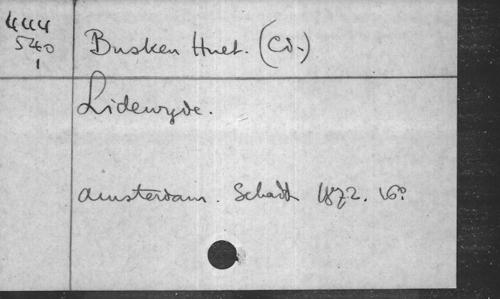 444
540
1
Busken Huet. (Cd.)
Lidewyde.
Amsterdam. Schadt 1872. 16º